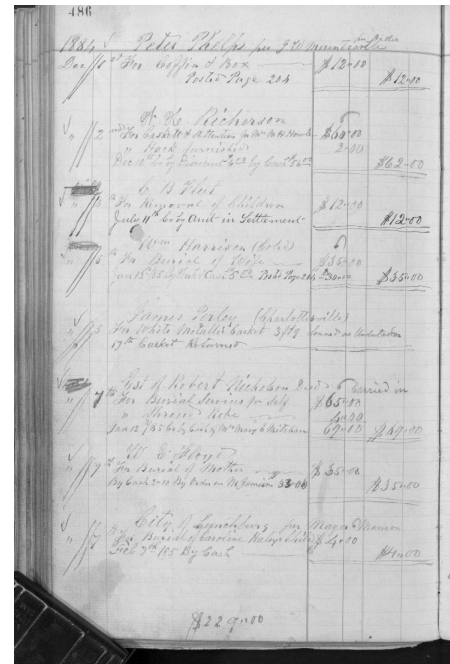 486
1884 Peter Phelps per J. W.
Dec 1st For Coffin & Box $12.00 $12.00
Posted Page 204
A. H. Richerson
" 2nd For Caskett & Attention for Mrs. $60.00
" Hack furnished 2.00
Dec 10th Cr by by Cash $62.00
C B Fleet
" For Removal of Children $12.00
July 11th Cr by Amt in Settlement $12.00
Wm Harrison (Cold)
" 5th For Burial of Wife $35.00
Jan 15th 85 by Cash 5.00 Posted Page 204 30.00 $35.00
James Perley (Charlottesville)
" 5 For White Metallic Casket 3 ft 9 loaned as Undertaker
17th Casket Returned
Est of Robert Nicholson Decd Carried in
" 7th For Burial Services for Self $65.00
" Shroud Robe 4.00
Jan 12 /85 Cr by Cash of Mrs Mary E 69.00 $69.00
W. E. Floyd
" 7th For Burial of Mother $35.00
By Cash 2.00 By Order on 33.00 $35.00
City of Lynchburg per Mayor Manson
" 7 For Burial of Caroline Child $4.00
Feb 7th 85 By Cash $4.00
$229.00